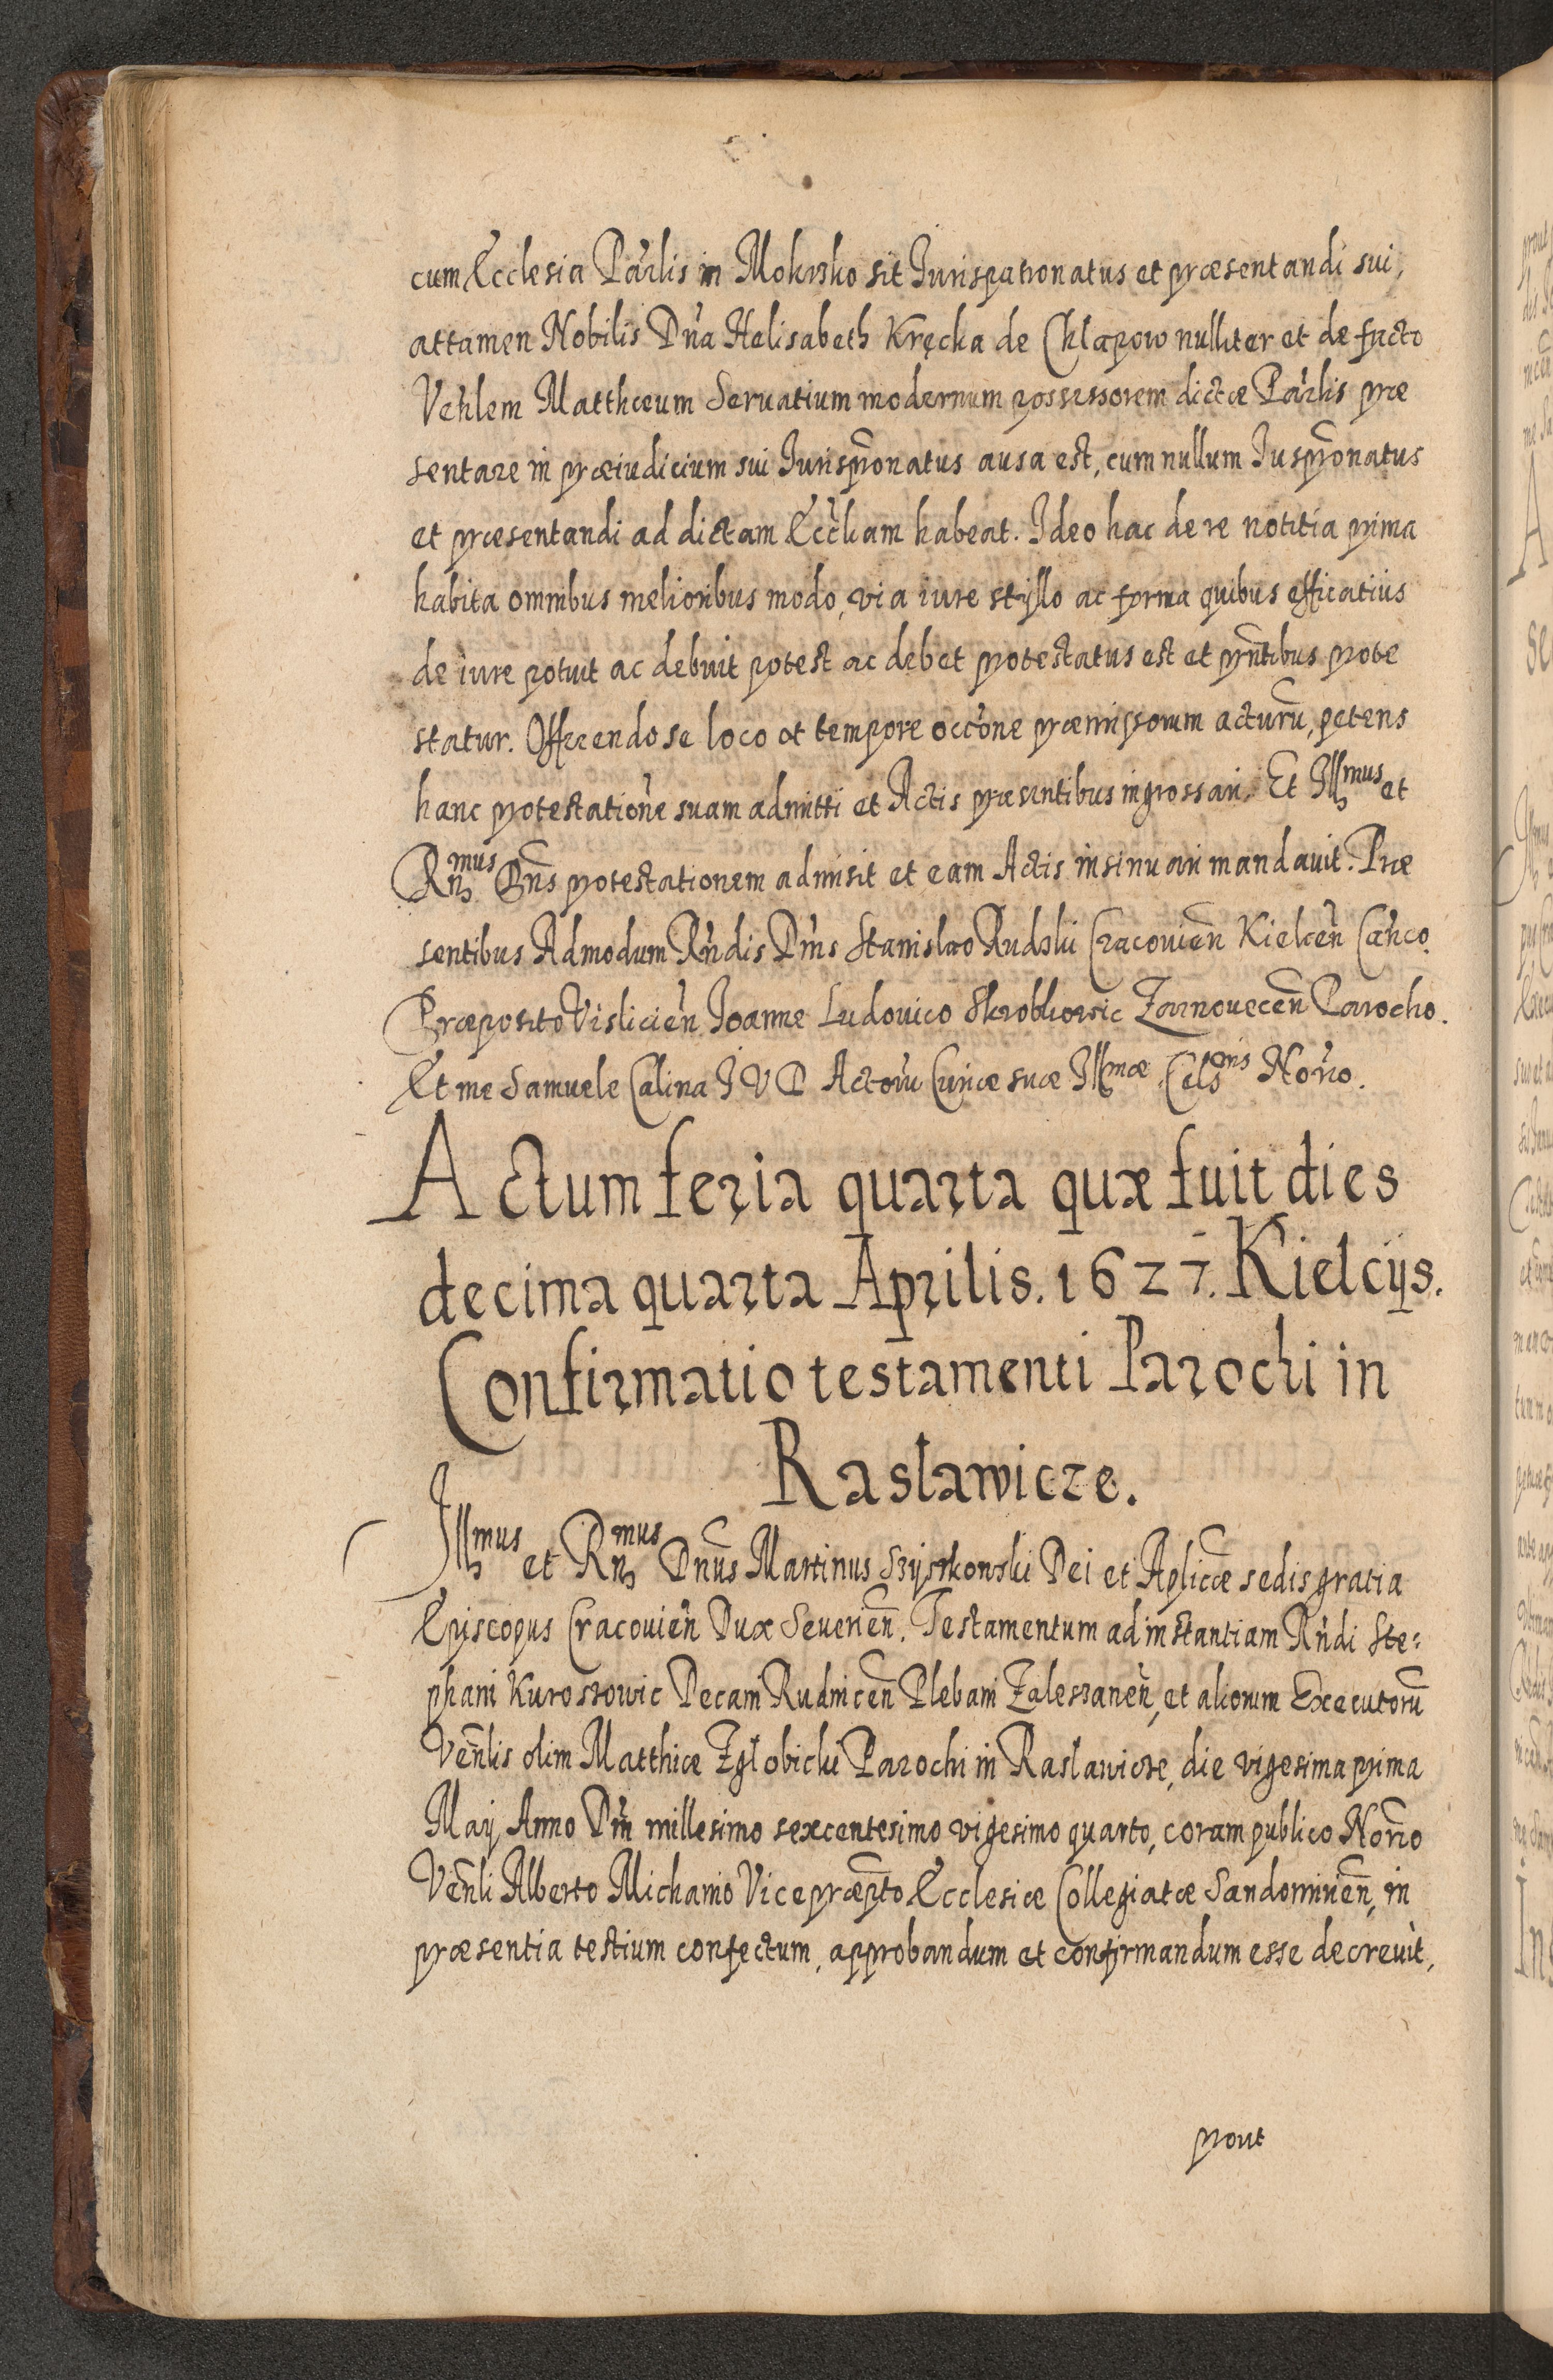 cum Ecclesia Parlis in Mokrsko sit Jurispatronatus et præsentandi sui,
attamen Nobilis Dna Helisabeth Kręcka de Chlapow nulliter et de facto
Venlem Matthæum Seruatium modernum possessorem dictæ Parlis præ
sentare in præiudicium sui Jurispronatus ausa est, cum nullum Juspronatus
et præsentandi ad dictam Eccliam habeat. Ideo hac de re notitia prima
habita omnibus melioribus modo, via iure styllo ac forma quibus efficatius
de iure potuit ac debuit potest ac debet protestatus est et prntibus prote
statur. Offerendo se loco et tempore occone præmissorum acturu, petens
hanc protestatione suam admitti et Actis præsentibus ingrossari. Et Illmus et
Rnmus Dns protestationem admisit et eam Actis insinuari mandauit. Præ
sentibus Admodum Rndis Dnis Stanislao Rudzki Cracouien Kielcen Canco.
Præposito Vislicien Joanne Ludouico Skrobkowic Zarnouecen Parocho.
Et me Samuele Calina J U D Actoru Curiæ suæ Illmæ Celsonis Norio.
Actum feria quarta quæ fuit dies
decima quarta Aprilis. 1627. Kielcijs.
Confirmatio testamenti Parochi in
Raslawicze.
Illmus et Rnmus Dnus Martinus Szyszkowski Dei et Aplicæ sedis gratia
Episcopus Cracouien Dux Seuerien. Testamentum ad instantiam Rndi Ste:
phani Kuroszowic Decani Rudnicen Plebani Zaleszanen, et aliorum Executoru
Venlis olim Matthiæ Zglobicki Parochi in Raslawicze, die vigesima prima
Maij Anno Dni millesimo sexcentesimo vigesimo quarto, coram publico Norio
Venli Alberto Michanio Vicepræpto Ecclesiæ Collegiatæ Sandomirien, in
præsentia testium confectum, approbandum et confirmandum esse decreuit,
prout